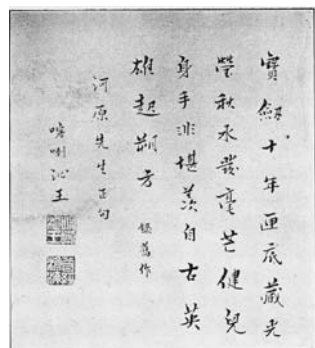 寶劍十年匣底藏光
瑩秋水發毫芒健兒
身手非堪羨自古英
雄起朔方 錄舊作
河原先生正句
喀喇沁王